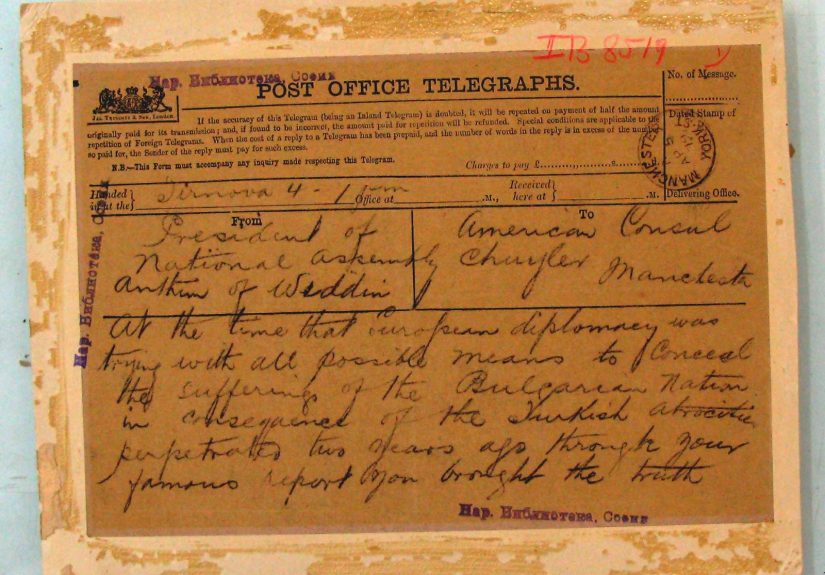 IB 8519
Нар. Библиотека, София
POST OFFICE TELEGRAPHS.
No. of Message.
If the accuracy of this Telegram (being an Inland Telegram) is doubted, it will be repeated on payment of half the amount
originally paid for its transmission; and, if found to be incorrect, the amount paid for repetition will be refunded. Special conditions are applicable to the
repetition of Foreign Telegrams. When the cost of a reply to a Telegram has been prepaid, and the number of words in the reply is in excess of the number
so paid for, the Sender of the reply must pay for such excess.
N.B.—This Form must accompany any inquiry made respecting this Telegram.
Charges to pay £ s.
Dated Stamp of
MANCHESTER
AP 5
Delivering Office.
Handed in at the Tirnova 4 - 1 pm Office at .M., Received here at .M.
From
President of
National Assembly
Anthim of Widdin
To
American Consul
Chuyler Manchester
At the time that European diplomacy was
trying with all possible means to Conceal
the sufferings of the Bulgarian Nation
in consequence of the Turkish atrocities
perpetrated two years ago through your
famous report you brought the truth
Нар. Библиотека, София
Нар. Библиотека, София